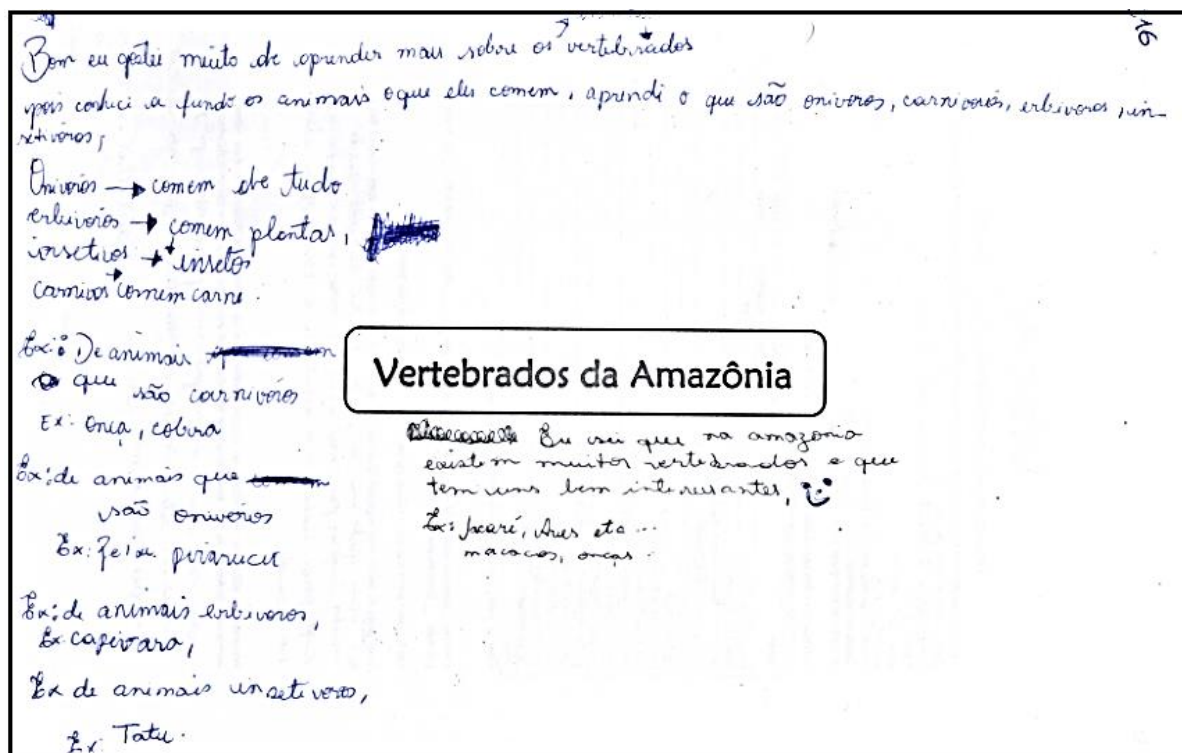 16
Bom eu gostei muito de aprender mais sobre os vertebrados
pois conheci a fundo os animais oque eles comem, aprendi o que são onivoros, carnivoros, erbivoros, in-
setivoros,
Onivoros → comem de tudo
erbivoros → comem plantas,
insetivos → insetos
carnivos → comem carne.
Ex: De animais
que são carnivoros
Ex: Onça, cobra
Ex: de animais que
são onivoros
Ex: Peixe pirarucu
Ex: de animais erbivoros,
Ex capivara,
Ex de animais insetivoros,
Ex: Tatu.
Vertebrados da Amazônia
Eu sei que na amazonia
existem muitos vertebrados e que
tem uns bem interessantes,
Ex: Jacaré, Aves etc...
macacos, onças.